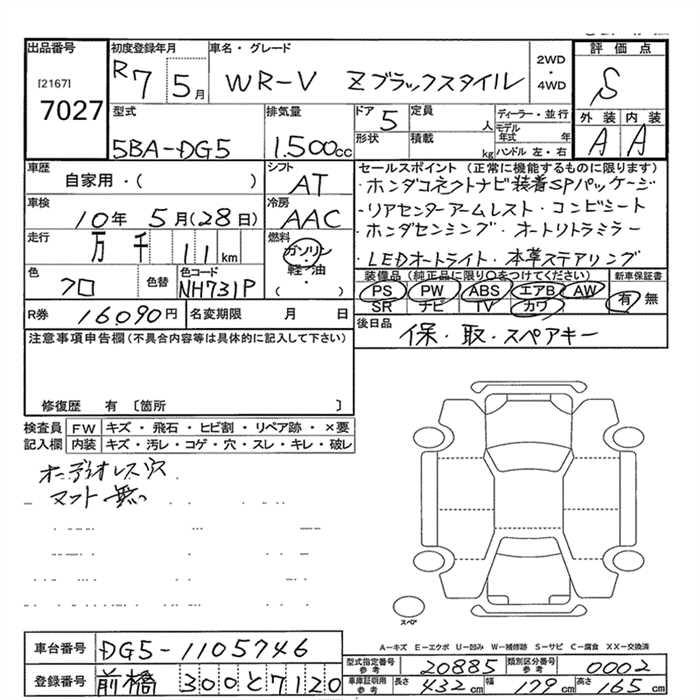 出品番号 初度登録年月 車名・グレード 2WD・4WD 評価点
[2167] 7027 R7 5月 WR-V Zブラックスタイル S
型式 排気量 ドア 5 定員 人 ディーラー・並行 外装 内装
5BA-DG5 1.500cc 形状 積載 kg モデル年式 年 ハンドル 左・右 A A
車歴 シフト セールスポイント (正常に機能するものに限ります)
自家用・( ) AT ・ホンダコネクトナビ装着SPパッケージ
車検 冷房 ・リアセンターアームレスト・コンビシート
10年 5月(28日) AAC ・ホンダセンシング・オートリトラミラー
走行 万千11km 燃料 ガソリン・軽油・( ) ・LEDオートライト・本革ステアリング
色 クロ 色替 色コード NH731P 装備品(純正品に限り○をつけてください) 新車保証書
PS PW ABS エアB AW 有 無
SR ナビ TV カワ
R券 16090円 名変期限 月 日 後日品 保・取・スペアキー
注意事項申告欄(不具合内容等は具体的に記入して下さい)
修復歴 有 〔箇所 〕
検査員 FW キズ・飛石・ヒビ割・リペア跡・×要
記入欄 内装 キズ・汚レ・コゲ・穴・スレ・キレ・破レ
オーディオレス穴
マット無し
スペア
A-キズ E-エクボ U-凹み W-補修跡 S-サビ C-腐食 XX-交換済
車台番号 DG5-1105746
型式指定番号 参考 20885 類別区分番号 参考 0002
登録番号 前橋 300と7120 車庫証明用 参考 長さ 432cm 幅 179cm 高さ 165cm